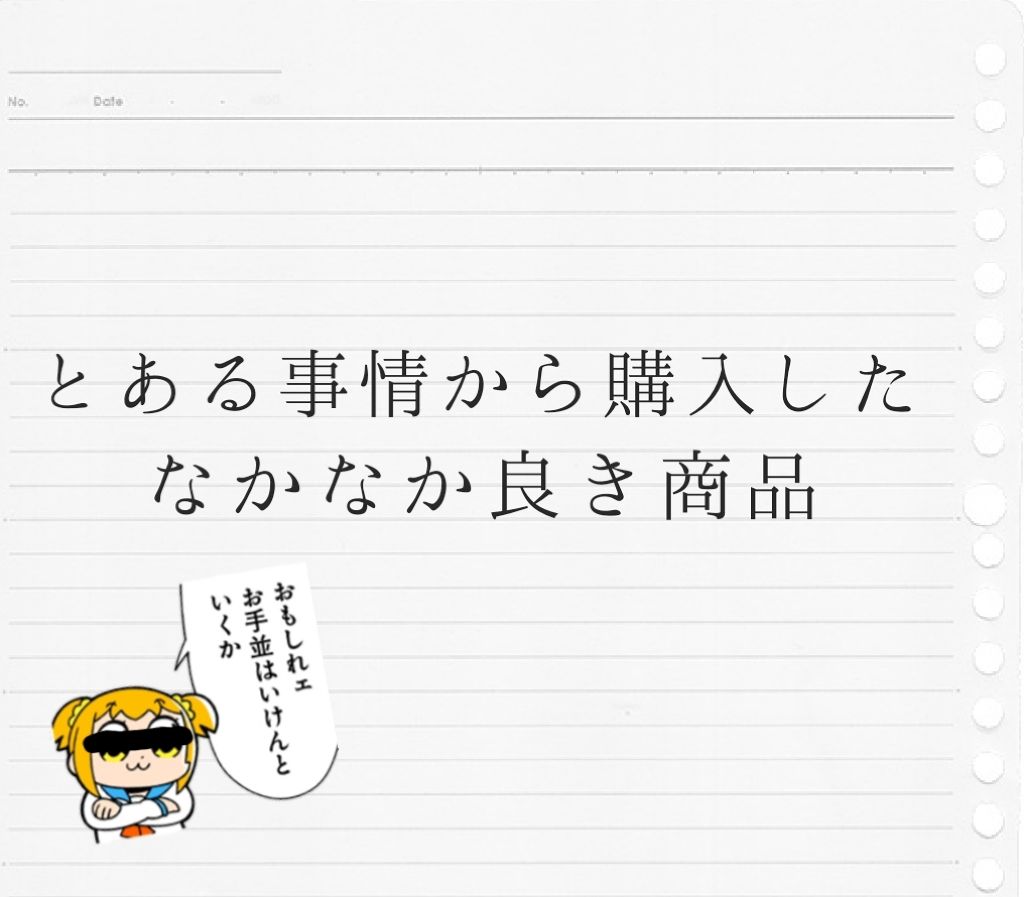 No. Date
とある事情から購入した
なかなか良き商品
おもしれェ
お手並はいけんと
いくか